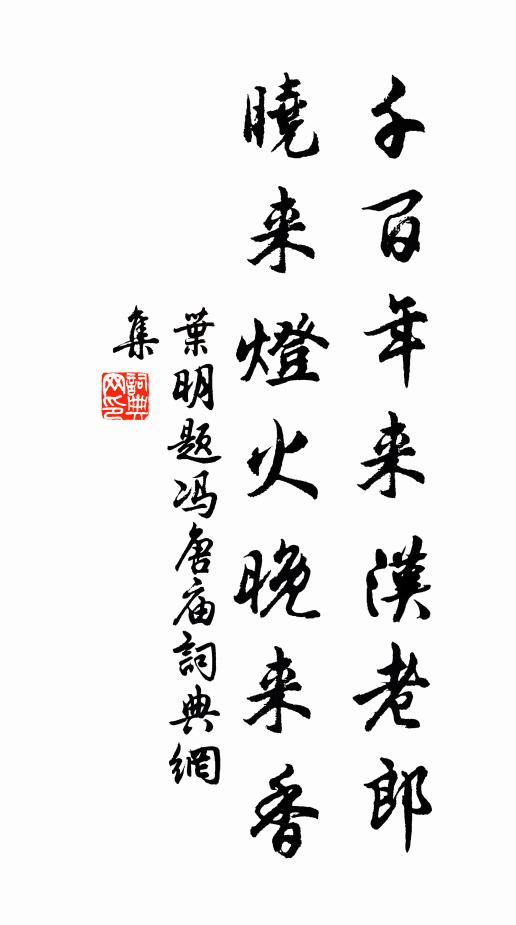 千百年来漢老郎
曉来燈火晚来香
葉明题冯唐庙詞典網
集
詞典网印